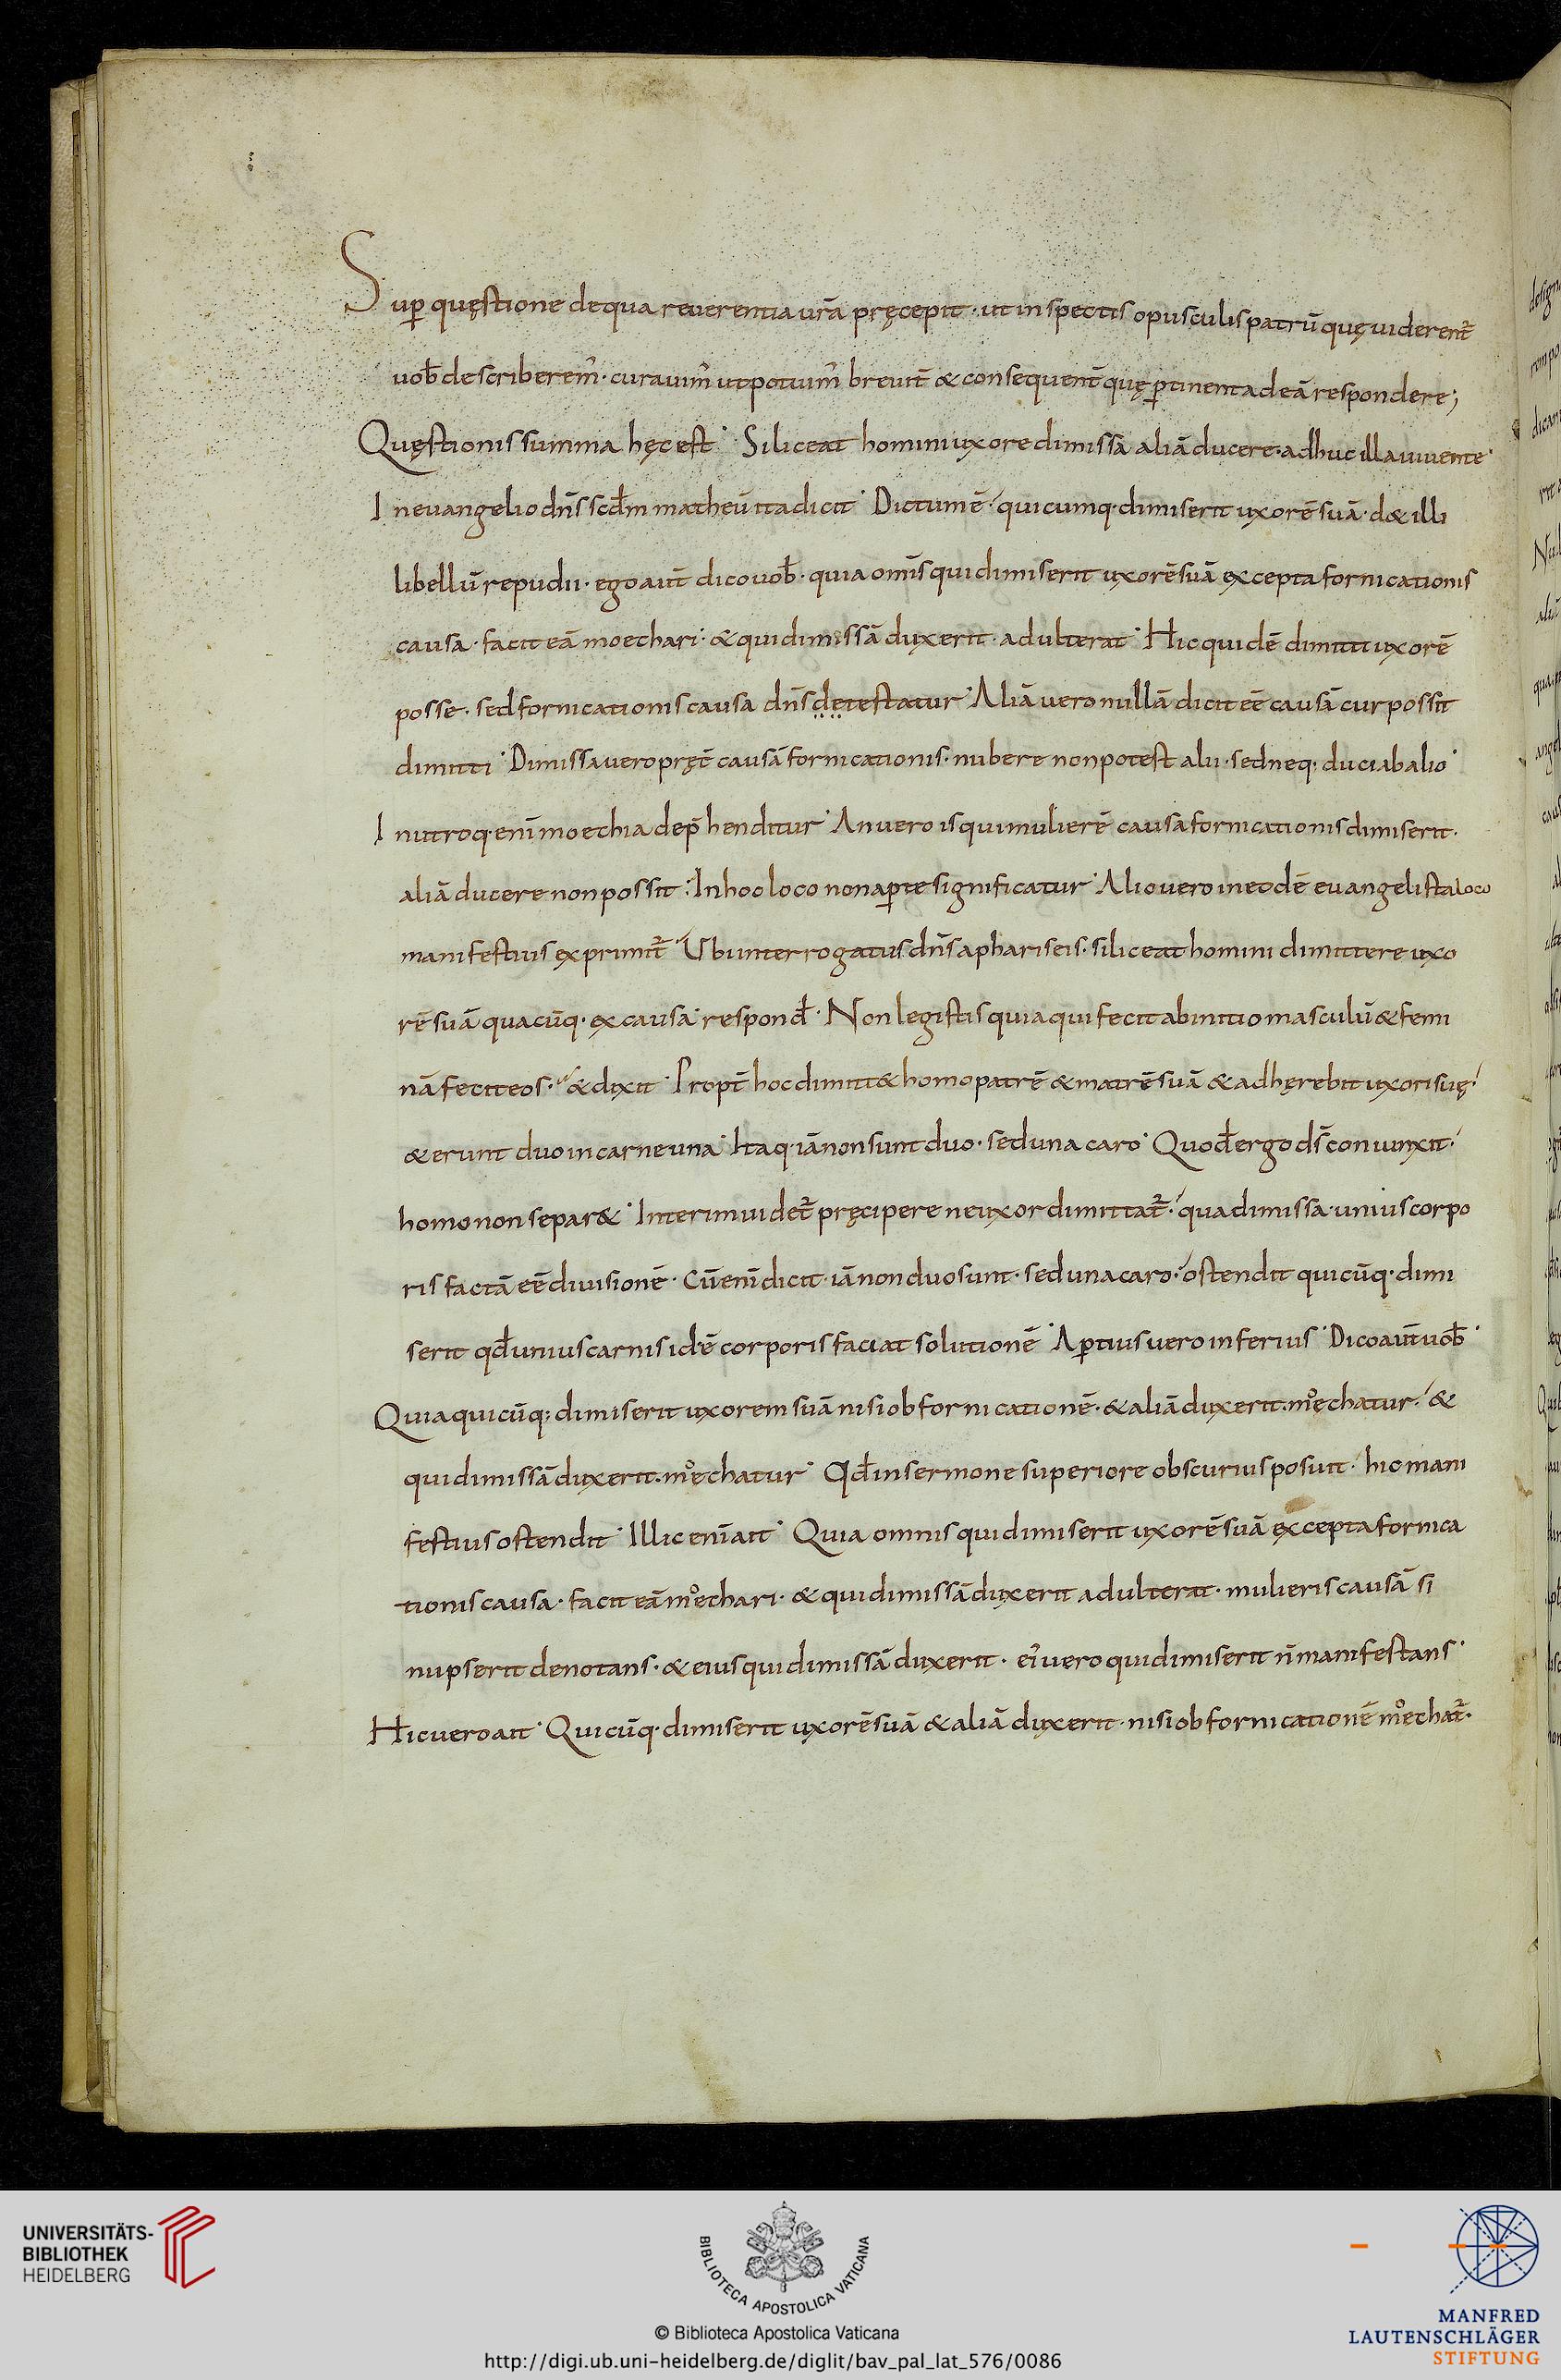 Sup̄ quęstione dequa reuerentia urā pręcepit · ut inspectis opusculis patrū quę uiderent̄
uob̄ describerem̄ · curauim̄ ut potuim̄ breuit̄ & consequent̄ quę p̱tinent ad eā respondere;
Quęstionis summa hęc est · Si liceat homini uxore dimissa aliā ducere · adhuc illa uiuente ·
In euangelio dn̄s scd̄m matheū ita dicit · Dictum ē · quicumq· dimiserit uxorē suā · d& illi
libellū repudii · ego aut̄ dico uob̄ · quia omn̄s qui dimiserit uxorē suā excepta fornicationis
causa · facit eā moechari · & qui dimissā duxerit · adulterat · Hic quidē dimitti uxorē
posse · sed fornicationis causa dn̄s detestatur · Aliā uero nullā dicit eē causā cur possit
dimitti · Dimissa uero pręt̄ causā fornicationis · nubere non potest alii · sed neq· duci ab alio ·
In utroq· enī moechia dep̄henditur · An uero is qui mulierē causa fornicationis dimiserit ·
aliā ducere non possit · In hoc loco non ap̱te significatur · Alio uero in eodē euangelista loco
manifestius exprimit̄ · Ubi interrogatus dn̄s a phariseis · si liceat homini dimittere uxo
rē suā quacūq· ex causa · respond̄ · Non legistis quia qui fecit ab initio masculū & femi
nā fecit eos · & dixit · Propt̄ hoc dimitt& homo patrē & matrē suā & adhęrebit uxori suę ·
& erunt duo in carne una · Itaq· iā non sunt duo · sed una caro · Quod ergo ds̄ coniunxit ·
homo non separ& · Interim uidet̄ pręcipere ne uxor dimittat̄ · qua dimissa · unius corpo
ris factā eē diuisionē · Cū enī dicit · iā non duo sunt · sed una caro · ostendit quicūq· dimi
serit qd̄ unius carnis idē corporis faciat solutionē · Ap̱tius uero inferius · Dico aut̄ uob̄ ·
Quia quicūq; dimiserit uxorem suā nisi ob fornicationē · & aliā duxerit · moechatur · &
qui dimissā duxerit · moechatur · Qd̄ in sermone superiore obscurius posuit · hic mani
festius ostendit · Illic enī ait · Quia omnis qui dimiserit uxorē suā excepta fornica
tionis causa · facit eā moechari · & qui dimissā duxerit adulterat · mulieris causā si
nupserit denotans · & eius qui dimissā duxerit · ei᾽ uero qui dimiserit n̄ manifestans ·
Hic uero ait · Quicūq· dimiserit uxorē suā & aliā duxerit · nisi ob fornicationē moechat̄ ·
UNIVERSITÄTS-
BIBLIOTHEK
HEIDELBERG
BIBLIOTECA APOSTOLICA VATICANA
© Biblioteca Apostolica Vaticana
http://digi.ub.uni-heidelberg.de/diglit/bav_pal_lat_576/0086
MANFRED
LAUTENSCHLÄGER
STIFTUNG